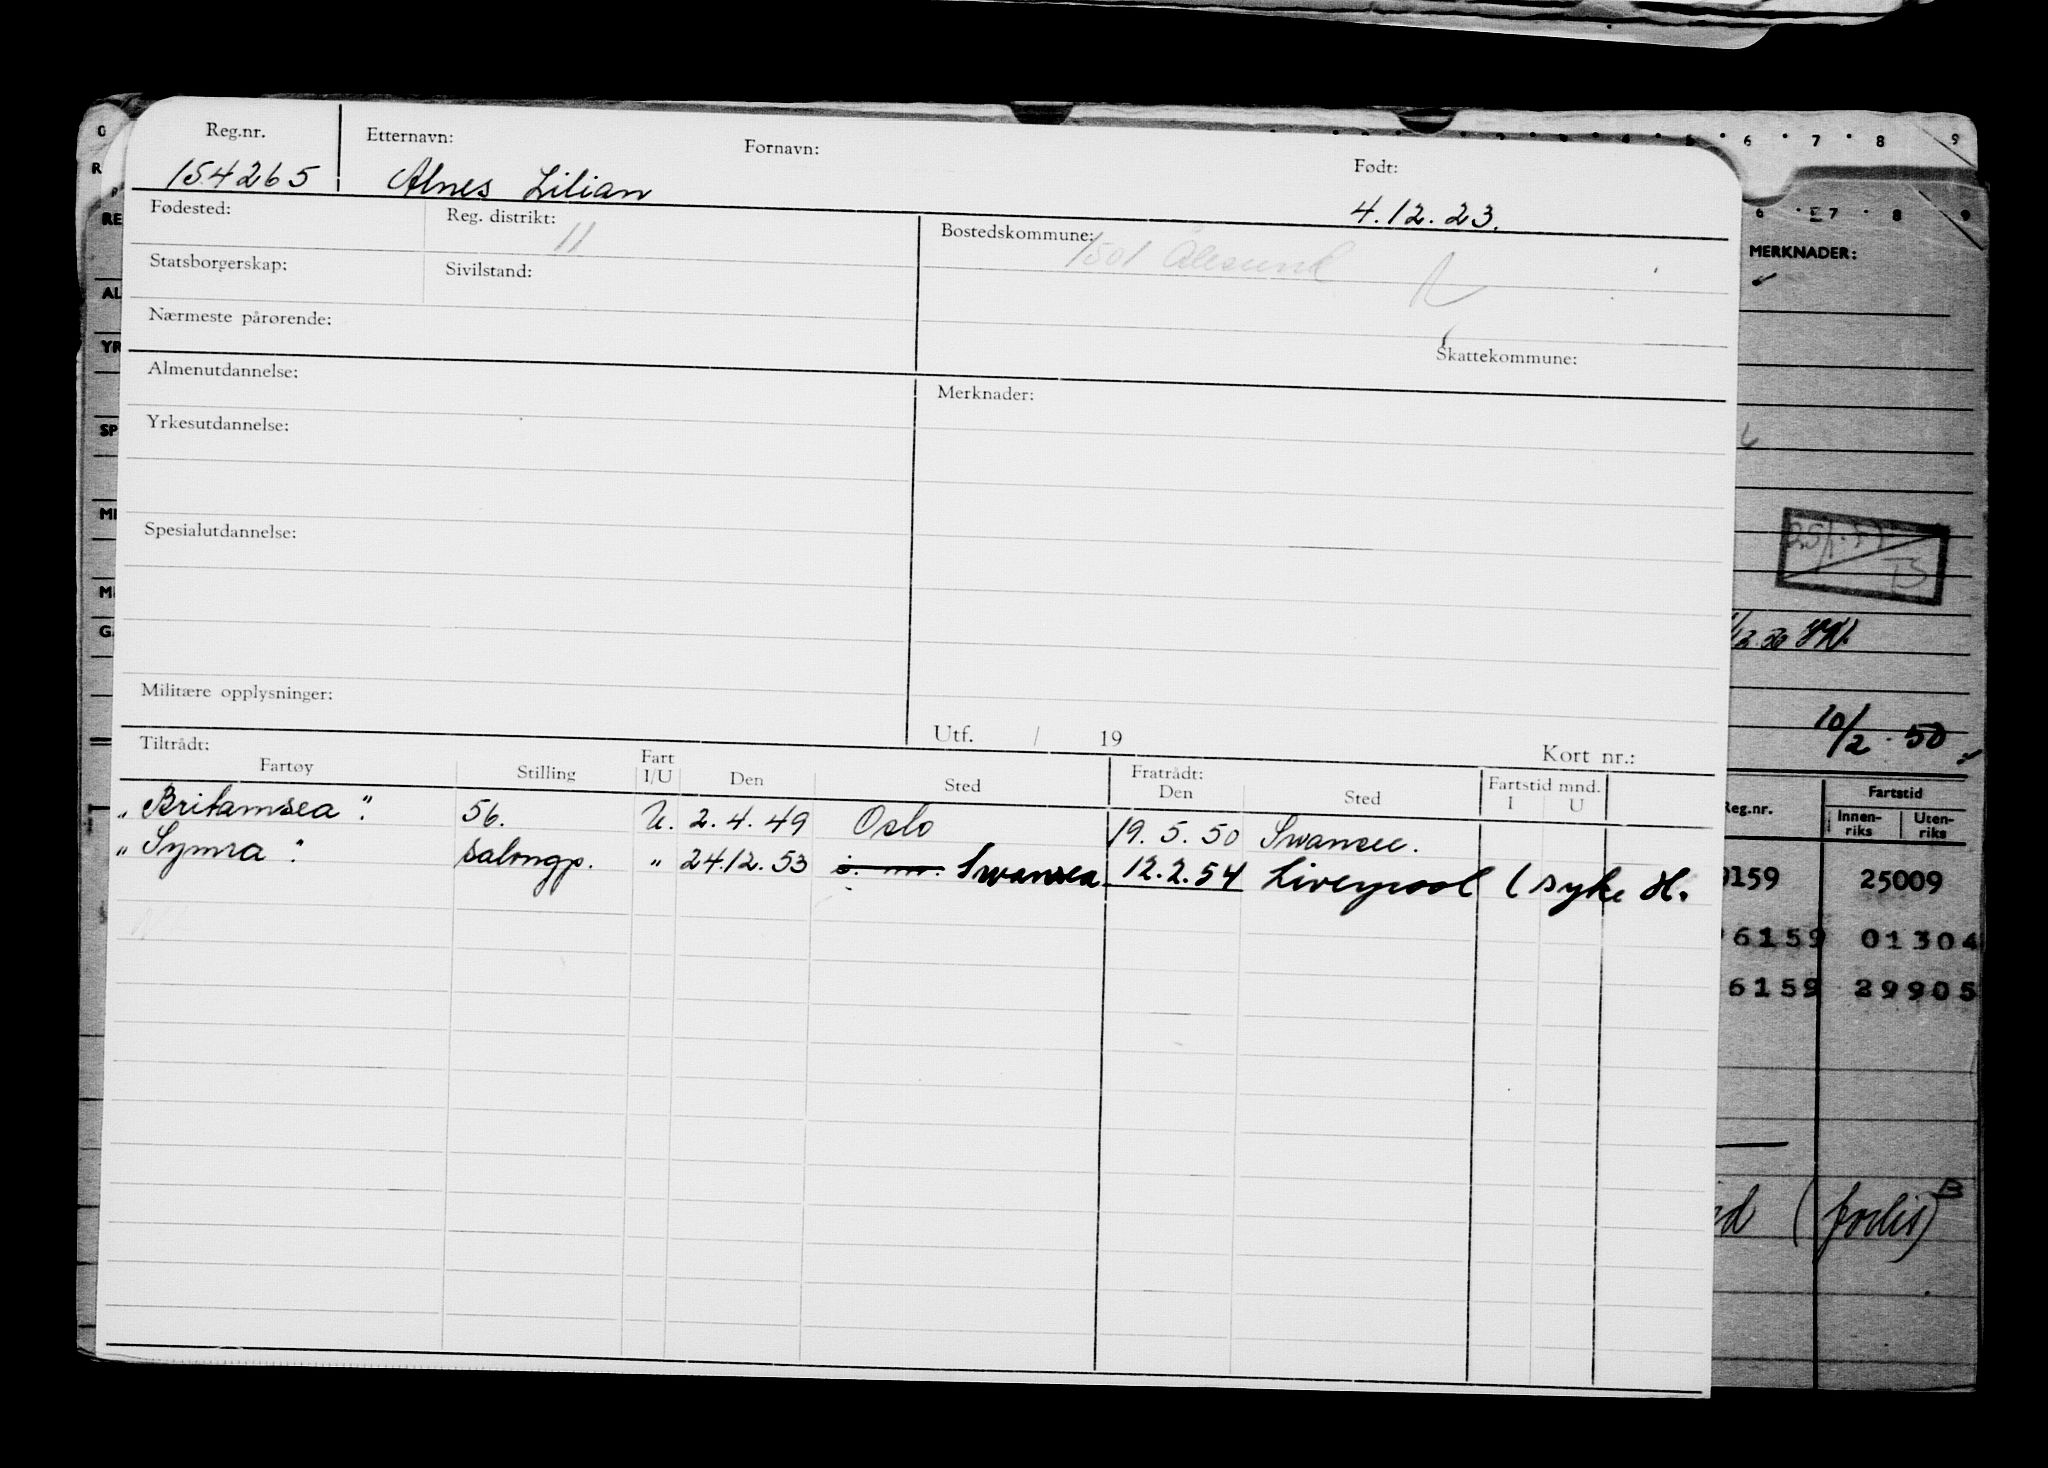 Reg.nr. Etternavn: Fornavn: Født:
154265 Alnes Lilian 4.12.23.
Fødested: Reg. distrikt: 11 Bostedskommune: 1501 Ålesund
Statsborgerskap: Sivilstand:
Nærmeste pårørende:
Skattekommune:
Almenutdannelse: Merknader:
Yrkesutdannelse:
Spesialutdannelse:
Militære opplysninger:
Utf. / 19 Kort nr.:
Tiltrådt: Fratrådt:
Fartøy Stilling Fart I/U Den Sted Den Sted Fartstid mnd. I U
„Britamsea" 56. U. 2.4.49 Oslo 19.5.50 Swansee.
„Symra" salongp. " 24.12.53 Swansea 12.2.54 Liverpool (syke H.
6 7 8 9
6 7 8 9
MERKNADER:
10/2.50
Reg.nr. Fartstid
Innen-riks Uten-riks
159 25009
6159 01304
6159 29905